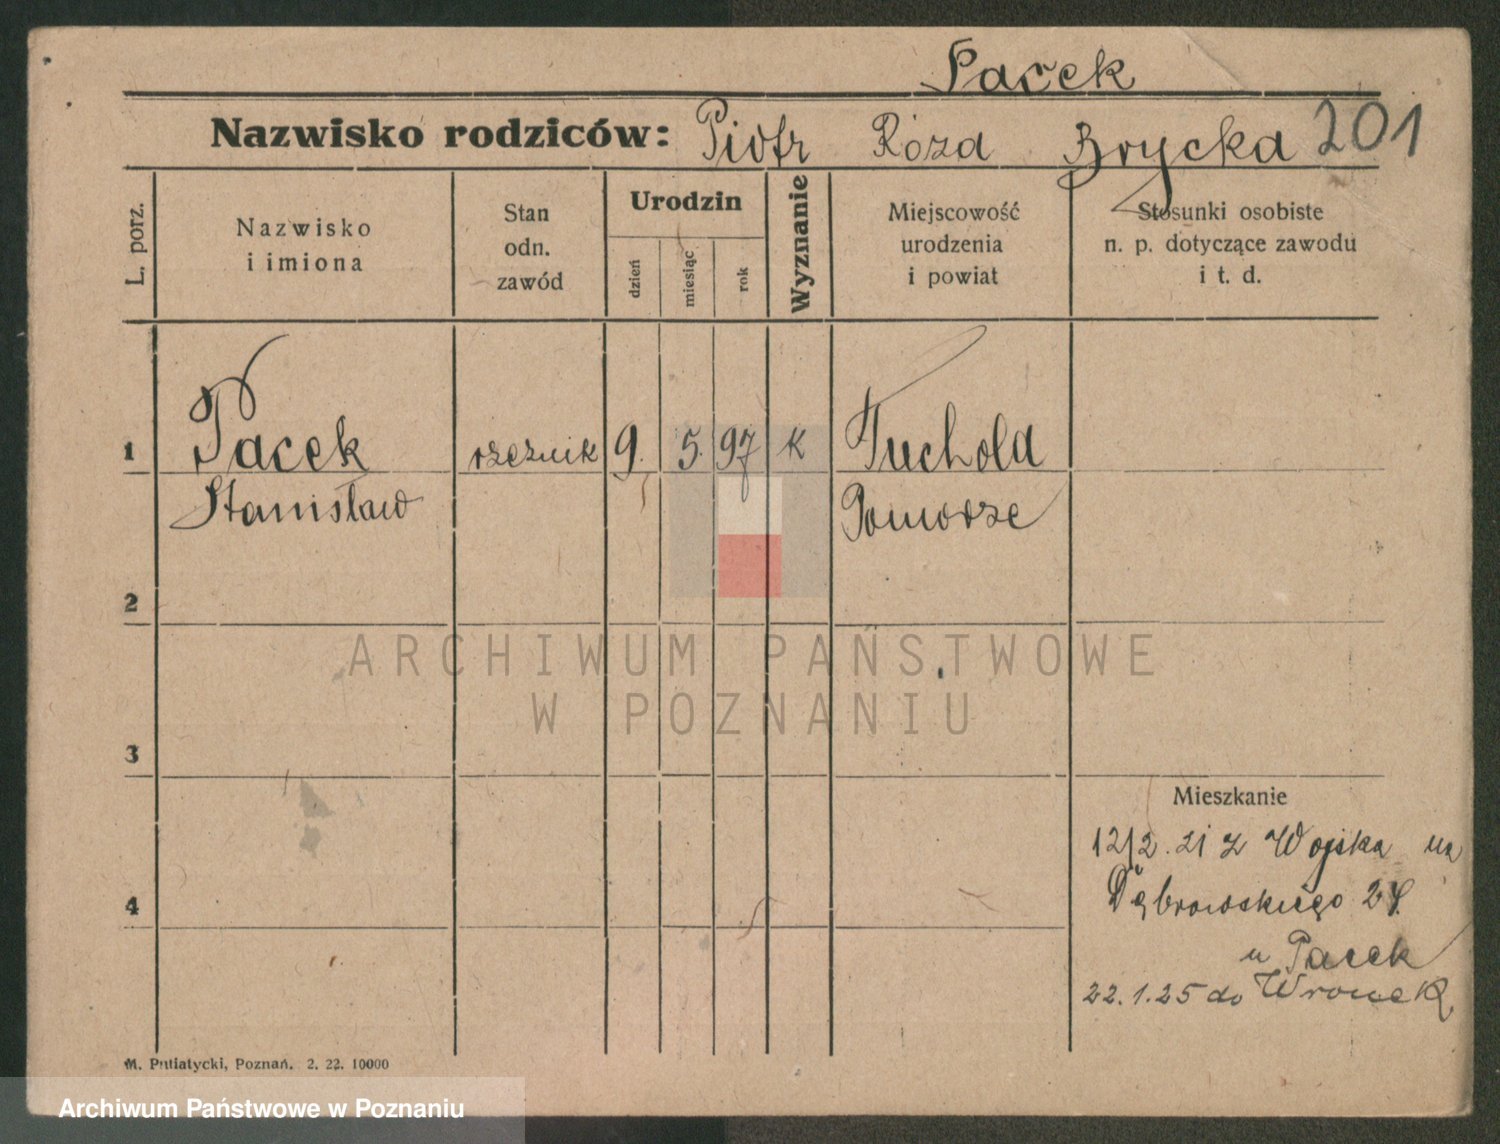 Pacek
Nazwisko rodziców: Piotr Róza Brycka 201
L. porz.
Nazwisko
i imiona
Stan
odn.
zawód
Urodzin
dzień
miesiąc
rok
Wyznanie
Miejscowość
urodzenia
i powiat
Stosunki osobiste
n. p. dotyczące zawodu
i t. d.
1 Pacek rzeznik 9. 5. 97 K Tuchola
Stanisław Pomorze
2
3
4
Mieszkanie
12/2. 21 z Wojska na
Dąbrowskiego 24
u Pacek
22.1.25 do Wronek
M. Putiatycki, Poznań. 2. 22. 10000
ARCHIWUM PAŃSTWOWE
W POZNANIU
Archiwum Państwowe w Poznaniu